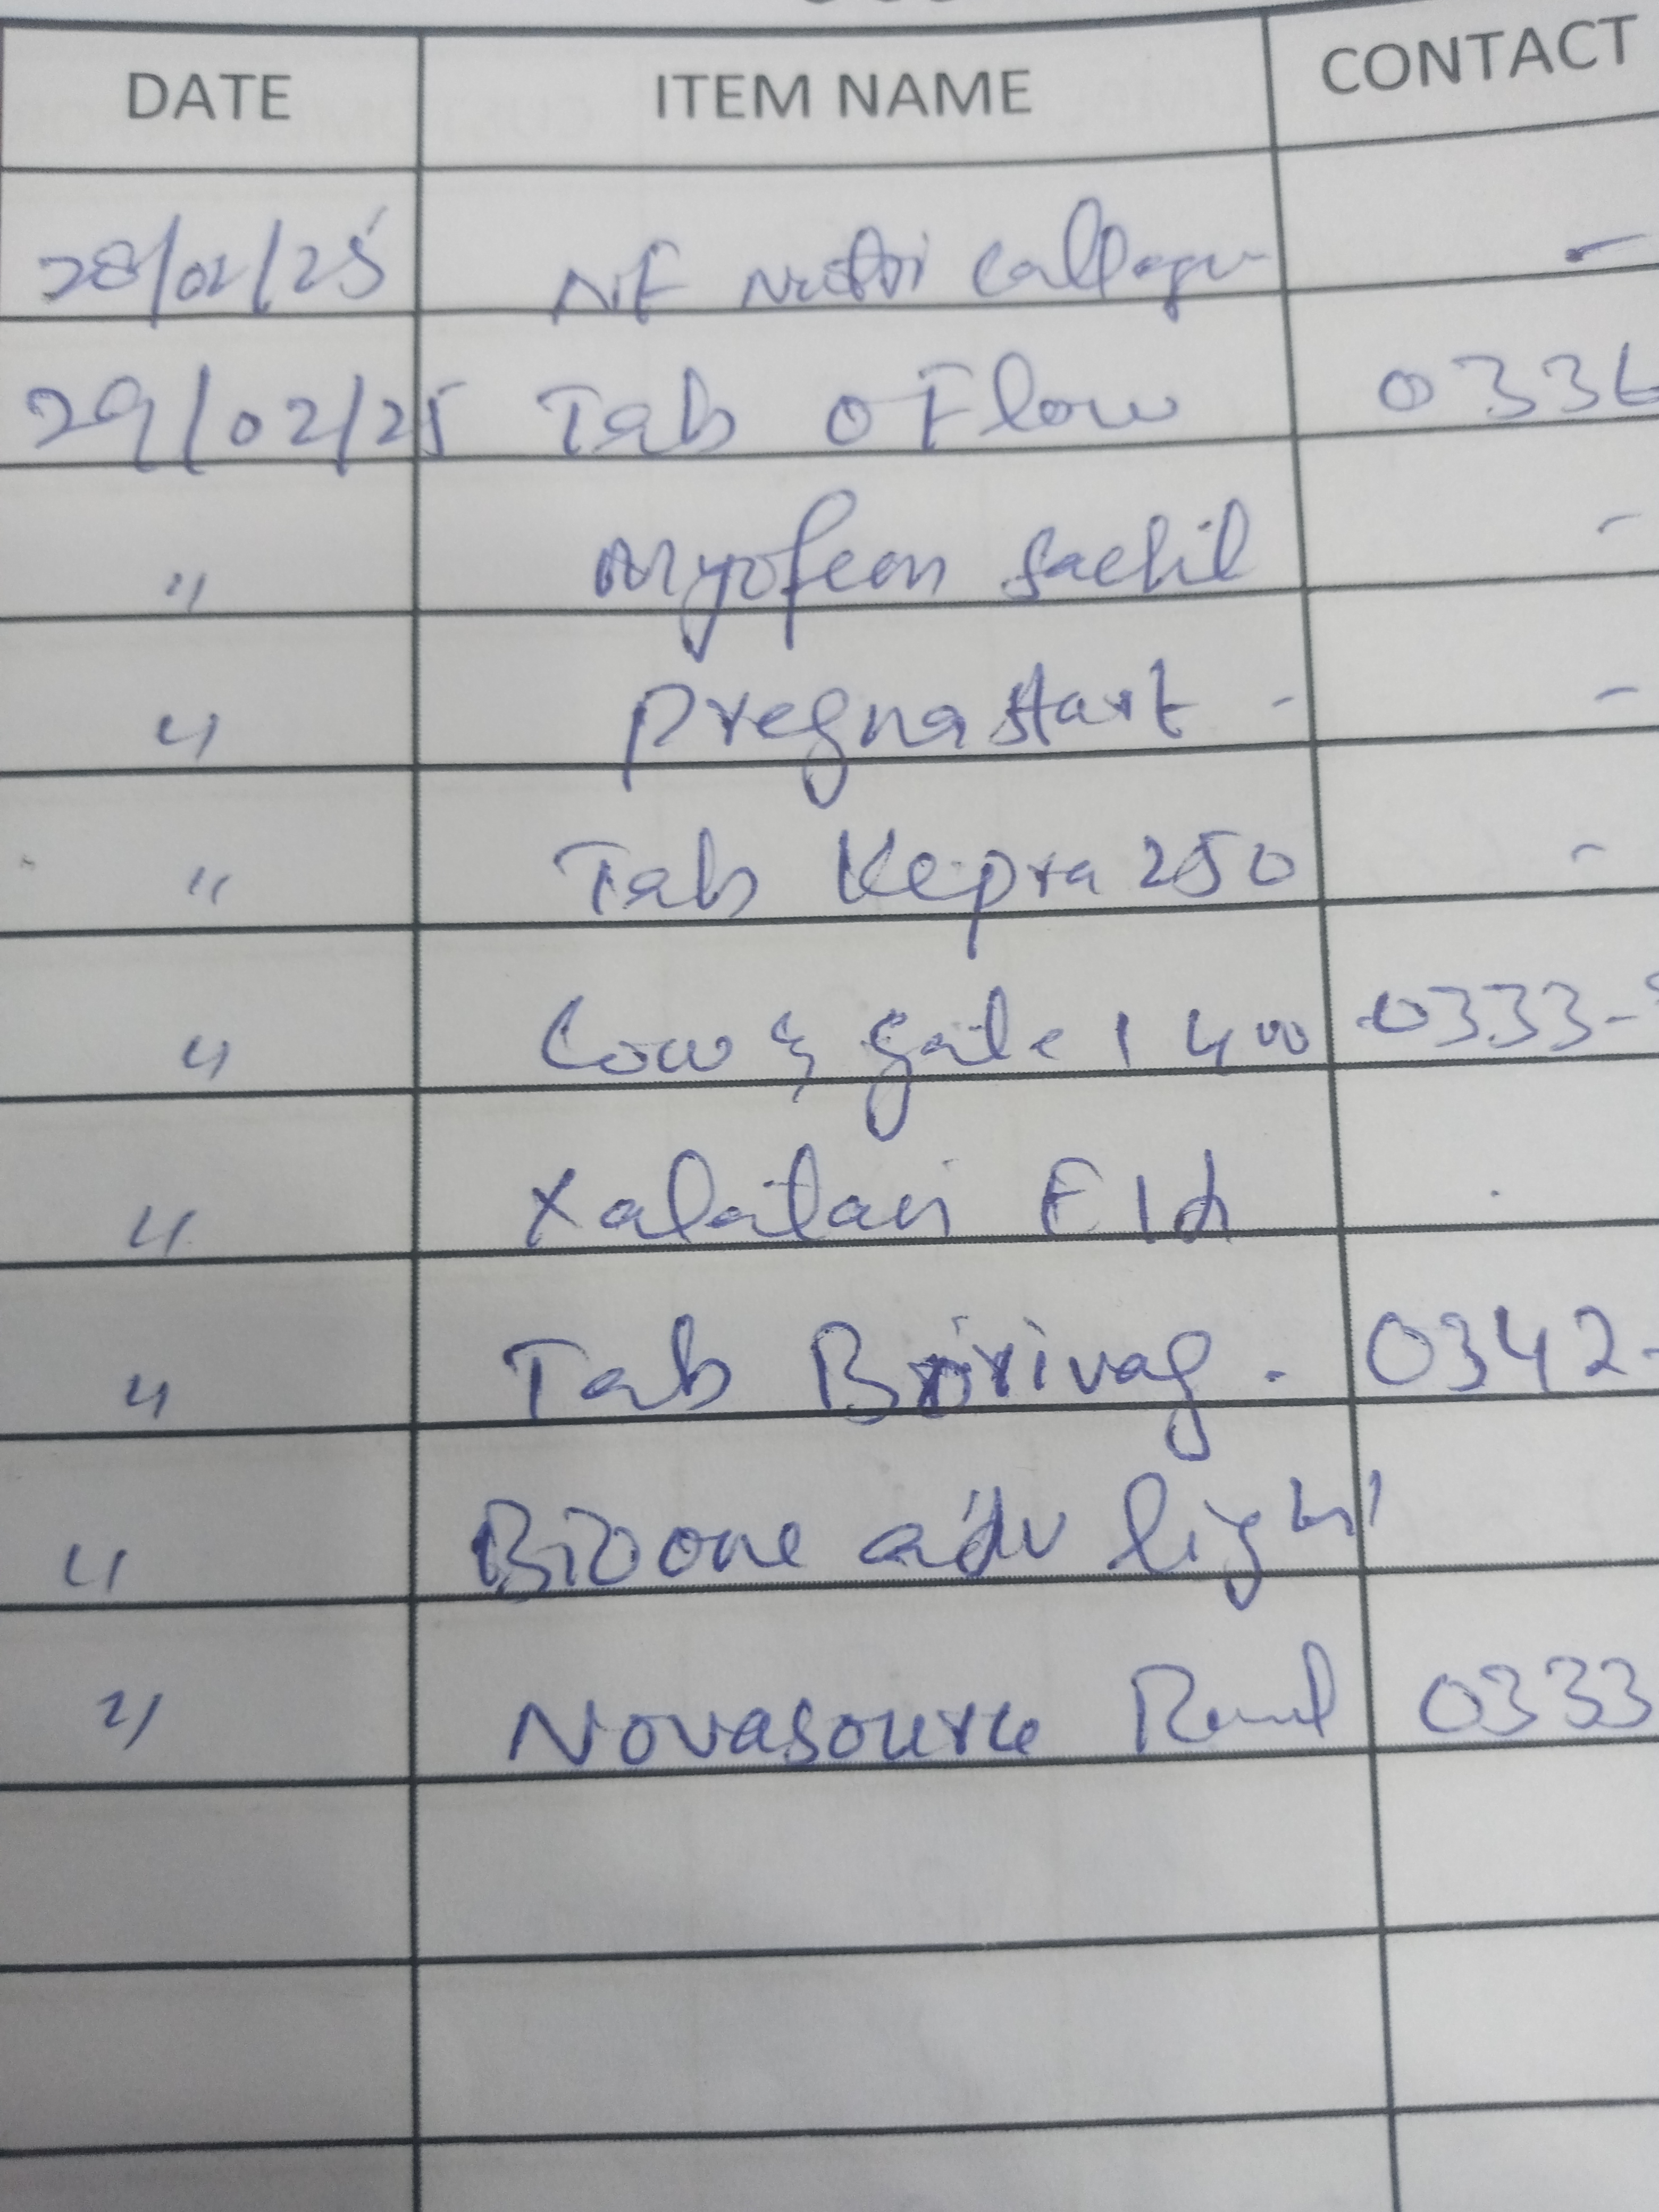 DATE ITEM NAME CONTACT
28/02/25 NF Nutri Collagen -
29/02/25 Tab O Flow 0336
" Myofeon Sachil -
" Pregna Start - -
" Tab Kepra 250 -
" Cow & gate 1 400 0333-
" Xalatan E/d
" Tab Brivag. 0342-
" adv light
" Novasource Renal 0333